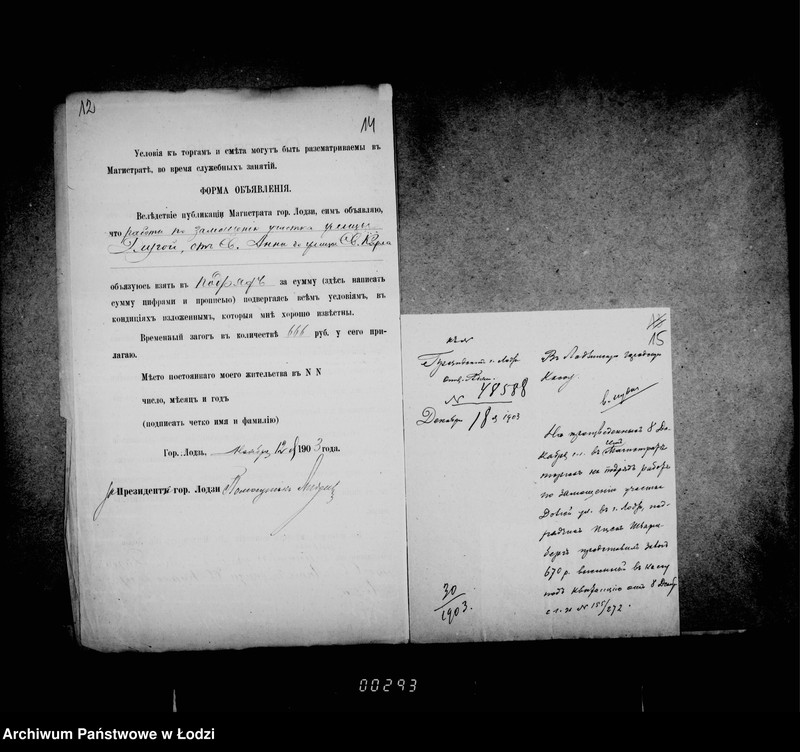 12
14
Условія къ торгамъ и смѣта могутъ быть разсматриваемы въ
Магистратѣ, во время служебныхъ занятій.
ФОРМА ОБЪЯВЛЕНІЯ.
Вслѣдствіе публикаціи Магистрата гор. Лодзи, симъ объявляю,
что работы по замощенію участка улицы
Длугой, отъ Св. Анны до улицы Св. Карла
обязуюсь взять въ подрядъ за сумму (здѣсь написать
сумму цифрами и прописью) подвергаясь всѣмъ условіямъ, въ
кондиціяхъ изложеннымъ, которыя мнѣ хорошо извѣстны.
Временный загогъ въ количествѣ 666 руб. у сего при-
лагаю.
Мѣсто постояннаго моего жительства въ N N
число, мѣсяцъ и годъ
(подписать четко имя и фамилію)
Гор. Лодзь, Ноября 12 1903 года.
Президентъ гор. Лодзи
15
Президентъ г. Лодзи
№ 48588
Декабря 18 д. 1903
30/1903.
Въ Лодзинскую городскую
Кассу
На произведенный 8 Де-
кабря с.г. въ Магистратѣ
торгахъ на подрядъ работъ
по замощенію участка
Длугой ул. въ г. Лодзи, под-
рядчикъ
бергъ представилъ залогъ
670 р. внесенный въ кассу
подъ квитанцію отъ 8 Декаб.
с.г. за № 155/272.
00293
Archiwum Państwowe w Łodzi